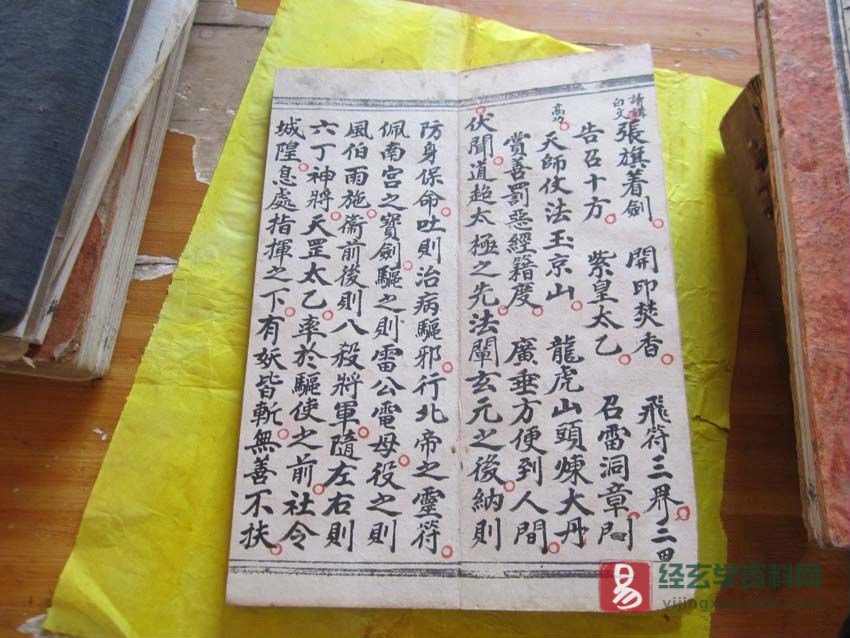 白文
張旗着劍 開印焚香 飛符三界三
告召十方 紫皇太乙 召雷洞章
天師仗法玉京山 龍虎山頭煉大丹
賞善罰惡經籍度 廣垂方便到人間
伏聞道超太極之先法闡玄元之後納則
防身保命吐則治病驅邪行北帝之靈符
佩南宮之寶劍驅之則雷公電母役之則
風伯雨施衛前後則八殺將軍隨左右則
六丁神將天罡太乙率於驅使之前社令
城隍息處指揮之下有妖皆斬無善不扶
易
经玄学资料网